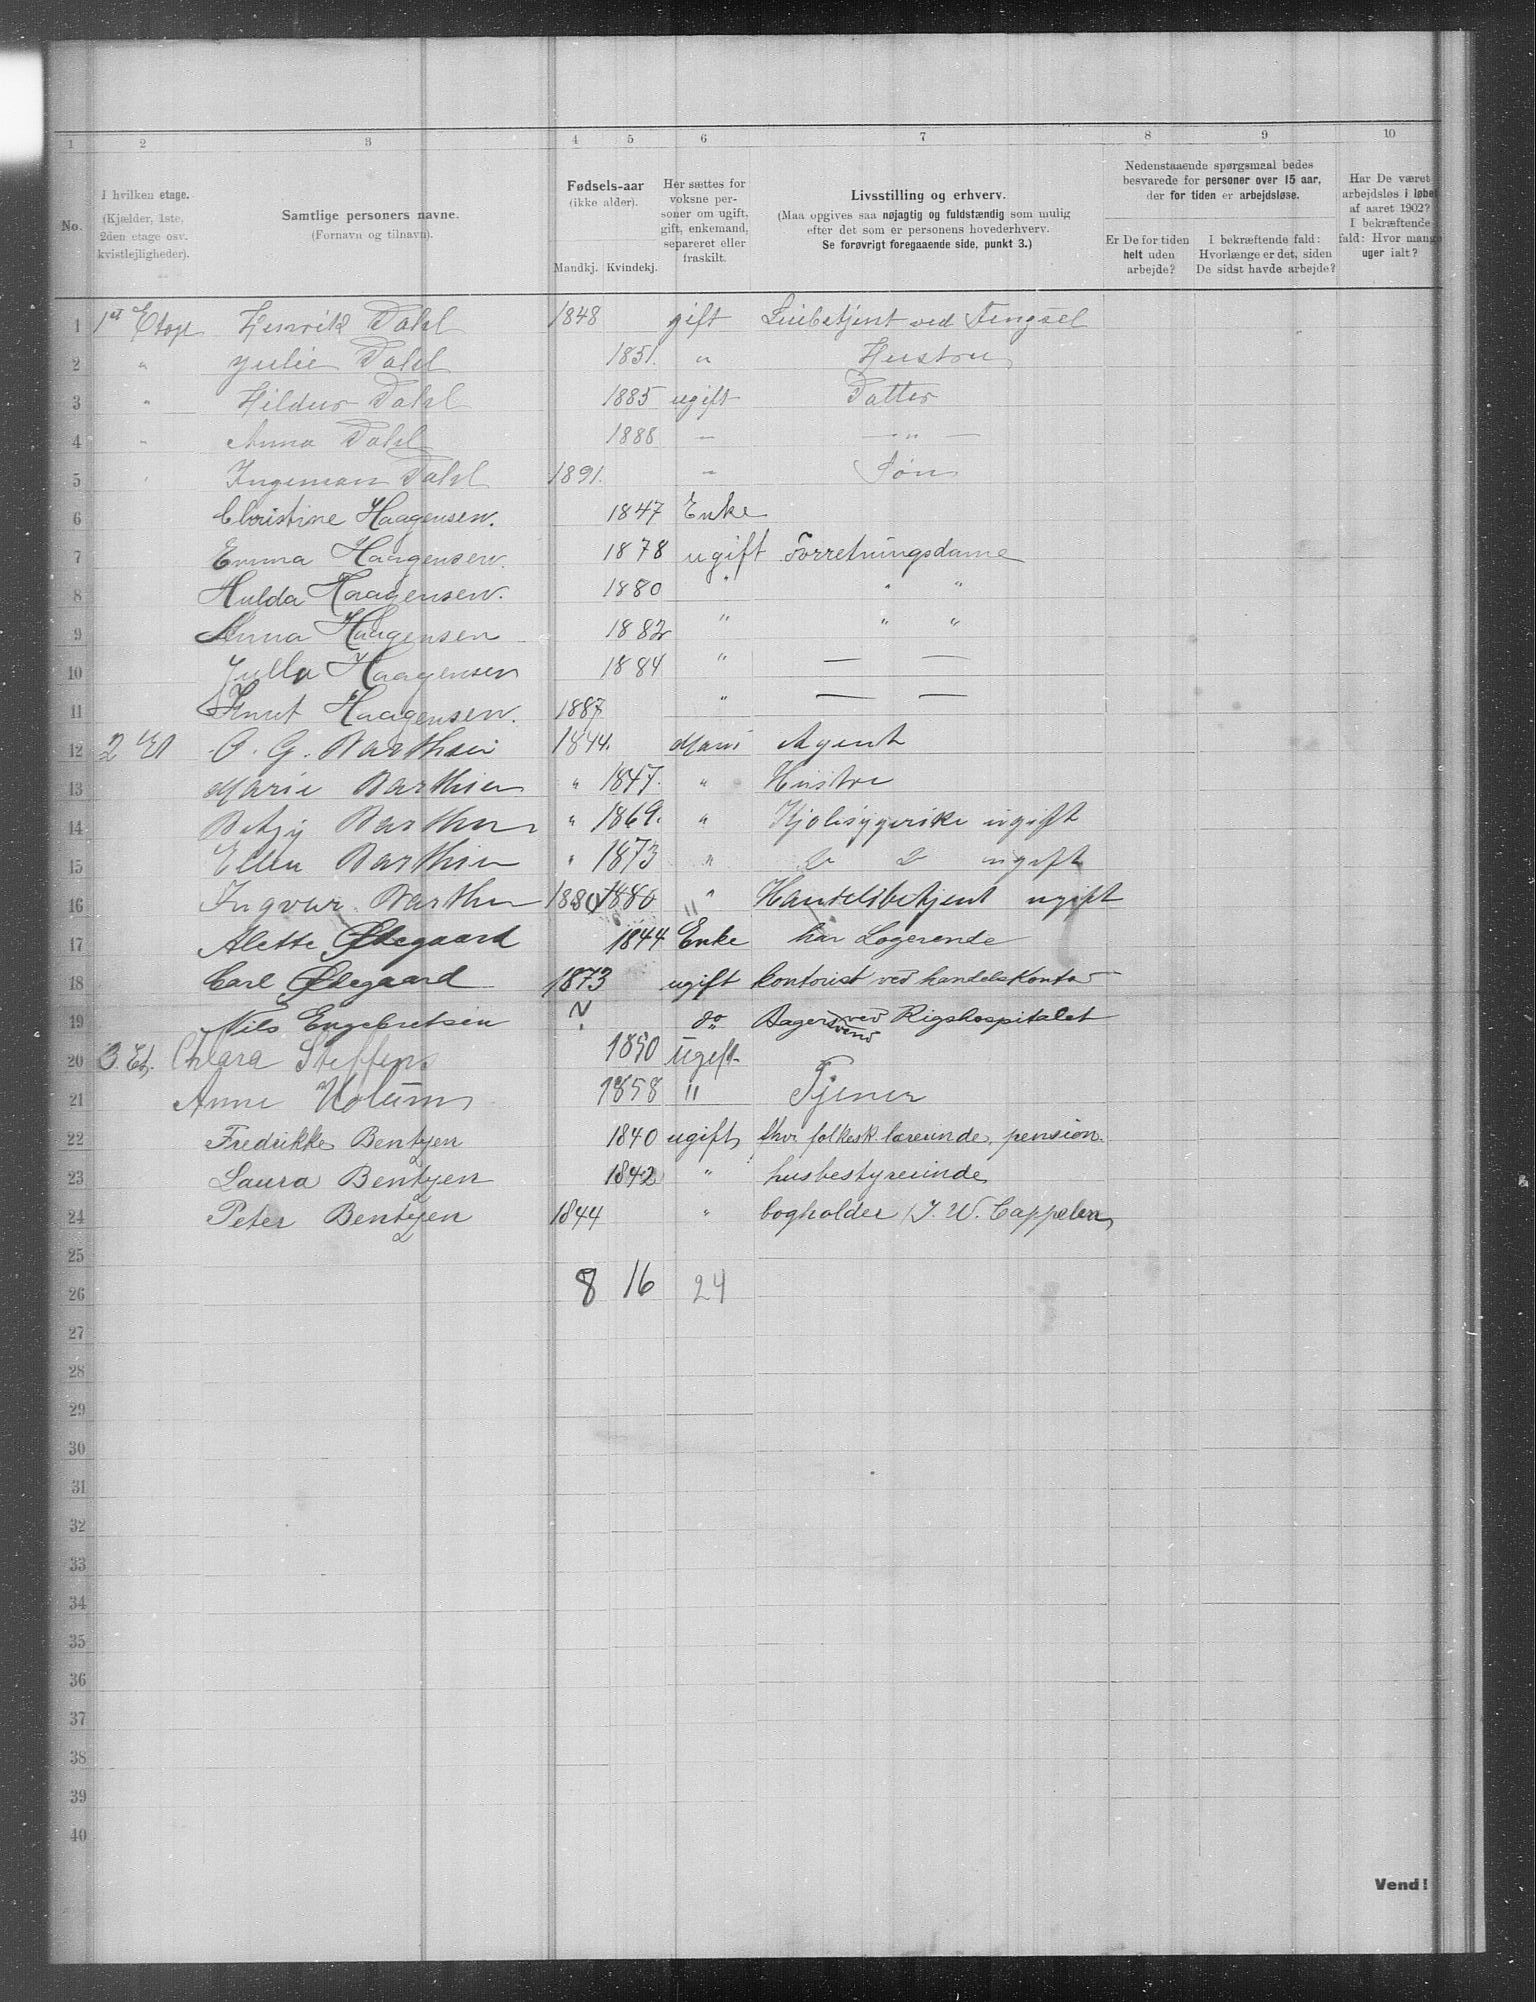 1 2 3 4 5 6 7 8 9 10
No.
I hvilken etage.
(Kjælder, 1ste,
2den etage osv.
kvistlejligheder).
Samtlige personers navne.
(Fornavn og tilnavn).
Fødsels-aar
(ikke alder).
Mandkj. Kvindekj.
Her sættes for
voksne per-
soner om ugift,
gift, enkemand,
separeret eller
fraskilt.
Livsstilling og erhverv.
(Maa opgives saa nøjagtig og fuldstændig som mulig
efter det som er personens hovederhverv.
Se forøvrigt foregaaende side, punkt 3.)
Nedenstaaende spørgsmaal bedes
besvarede for personer over 15 aar,
der for tiden er arbejdsløse.
Er De for tiden
helt uden
arbejde?
I bekræftende fald:
Hvorlænge er det, siden
De sidst havde arbejde?
Har De været
arbejdsløs i løbet
af aaret 1902?
I bekræftende
fald: Hvor mange
uger ialt?
1 1st Etage Henrik Dahl 1848 gift ved Fengsel
2 " Julie Dahl 1851. " Hustru
3 " Hildur Dahl 1885 ugift Datter
4 " Anna Dahl 1888 — — " —
5 " Ingeman Dahl 1891. " Søn
6 Christine Haagensen. 1847 Enke
7 Emma Haagensen. 1878 ugift Forretningsdame
8 Hulda Haagensen. 1880 " " "
9 Anna Haagensen 1882 " " "
10 Julla Haagensen 1884 " — —
11 Knut Haagensen. 1887 " — —
12 2 Et O. G. Barthen 1844. Agent
13 Marie Barthen " 1847. " Hustro
14 Betzy Barthen " 1869. " Kjolesygerske ugift
15 Ellen Barthen " 1873 " ugift
16 Ingvar Barthen 1880 1880 " Handelsbetjent ugift
17 Alette Ødegaard 1844 Enke har Logerende
18 Carl Ødegaard 1873 ugift kontorist ved handelskontor
19 Nils Engebretsen ? do Bagersvend ved Rigshospitalet
20 3. Et. Chlara Steffens 1850 Ugift
21 Anne Holum 1858 " Tjener
22 Fredrikke Bentzen 1840 ugift fhv. folkesk. lærerinde, pension.
23 Laura Bentzen 1842 " husbestyrerinde
24 Peter Bentzen 1844 " bogholder J. W. Cappelen
25
8 16 24
26
27
28
29
30
31
32
33
34
35
36
37
38
39
40
Vend!